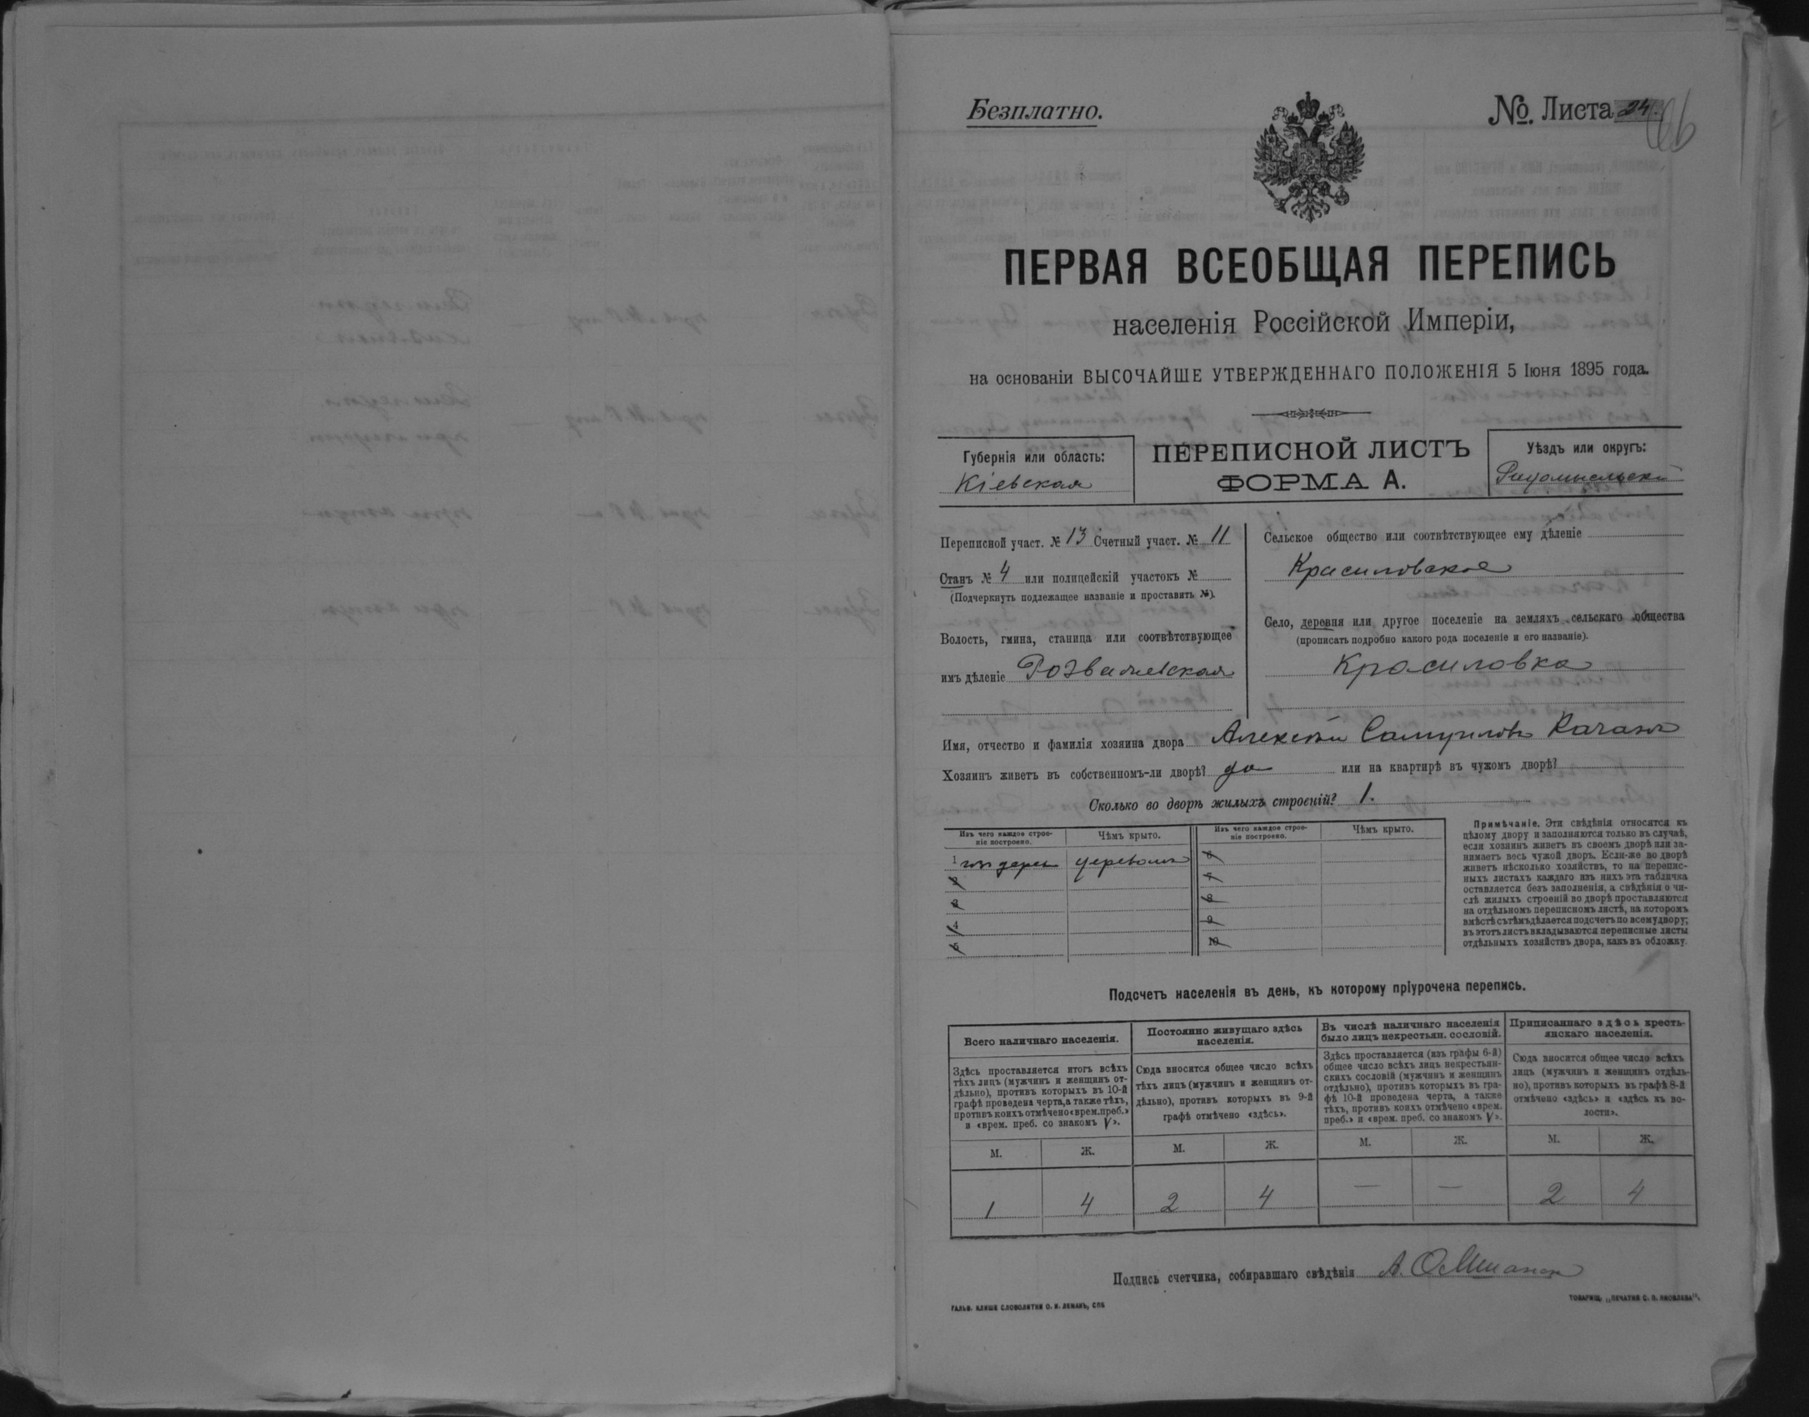 Безплатно.
№. Листа 24.
66
ПЕРВАЯ ВСЕОБЩАЯ ПЕРЕПИСЬ
населенія Россійской Имперіи,
на основаніи ВЫСОЧАЙШЕ УТВЕРЖДЕННАГО ПОЛОЖЕНІЯ 5 Іюня 1895 года.
Губернія или область:
Кіевская
ПЕРЕПИСНОЙ ЛИСТЪ
ФОРМА А.
Уѣздъ или округъ:
Радомысльскій
Переписной участ. № 13 Счетный участ. № 11
Станъ № 4 или полицейскій участокъ №
(Подчеркнуть подлежащее названіе и проставить №).
Волость, гмина, станица или соотвѣтствующее
имъ дѣленіе Розважевская
Сельское общество или соотвѣтствующее ему дѣленіе
Красиловское
Село, деревня или другое поселеніе на земляхъ сельскаго общества
(прописать подробно какого рода поселеніе и его названіе).
Красиловка
Имя, отчество и фамилія хозяина двора Алексѣй Самуиловъ Качанъ
Хозяинъ живетъ въ собственномъ-ли дворѣ? да или на квартирѣ въ чужомъ дворѣ?
Сколько во дворѣ жилыхъ строеній? 1.
Изъ чего каждое строе-
ніе построено.
Чѣмъ крыто.
Изъ чего каждое строе-
ніе построено.
Чѣмъ крыто.
1 изъ дерева деревомъ
2
3
4
5
6
7
8
9
10
Примѣчаніе. Эти свѣдѣнія относятся къ
цѣлому двору и заполняются только въ случаѣ,
если хозяинъ живетъ въ своемъ дворѣ или за-
нимаетъ весь чужой дворъ. Если-же во дворѣ
живетъ нѣсколько хозяйствъ, то на перепис-
ныхъ листахъ каждаго изъ нихъ эта табличка
оставляется безъ заполненія, а свѣдѣнія о чи-
слѣ жилыхъ строеній во дворѣ проставляются
на отдѣльномъ переписномъ листѣ, на которомъ
вмѣстѣ съ тѣмъ дѣлается подсчетъ по всему двору;
въ этотъ листъ вкладываются переписные листы
отдѣльныхъ хозяйствъ двора, какъ въ обложку.
Подсчетъ населенія въ день, къ которому пріурочена перепись.
Всего наличнаго населенія.
Здѣсь проставляется итогъ всѣхъ
тѣхъ лицъ (мужчинъ и женщинъ от-
дѣльно), противъ которыхъ въ 10-й
графѣ проведена черта, а также тѣхъ,
противъ коихъ отмѣчено «врем. преб.»
и «врем. преб. со знакомъ V».
Постоянно живущаго здѣсь
населенія.
Сюда вносится общее число всѣхъ
тѣхъ лицъ (мужчинъ и женщинъ от-
дѣльно), противъ которыхъ въ 9-й
графѣ отмѣчено «здѣсь».
Въ числѣ наличнаго населенія
было лицъ некрестьян. сословій.
Здѣсь проставляется (изъ графы 6-й)
общее число всѣхъ лицъ некрестьян-
скихъ сословій (мужчинъ и женщинъ
отдѣльно), противъ которыхъ въ гра-
фѣ 10-й проведена черта, а также
тѣхъ, противъ коихъ отмѣчено «врем.
преб.» и «врем. преб. со знакомъ V».
Приписаннаго здѣсь кресть-
янскаго населенія.
Сюда вносится общее число всѣхъ
лицъ (мужчинъ и женщинъ отдѣль-
но), противъ которыхъ въ графѣ 8-й
отмѣчено «здѣсь» и «здѣсь къ во-
лости».
М. Ж. М. Ж. М. Ж. М. Ж.
1 4 2 4 — — 2 4
Подпись счетчика, собиравшаго свѣдѣнія А.
ГАЛЬВ. КЛИШЕ СЛОВОЛИТНИ О. И. ЛЕМАНЪ, СПБ
ТОВАРИЩ. „ПЕЧАТНЯ С. П. ЯКОВЛЕВА".